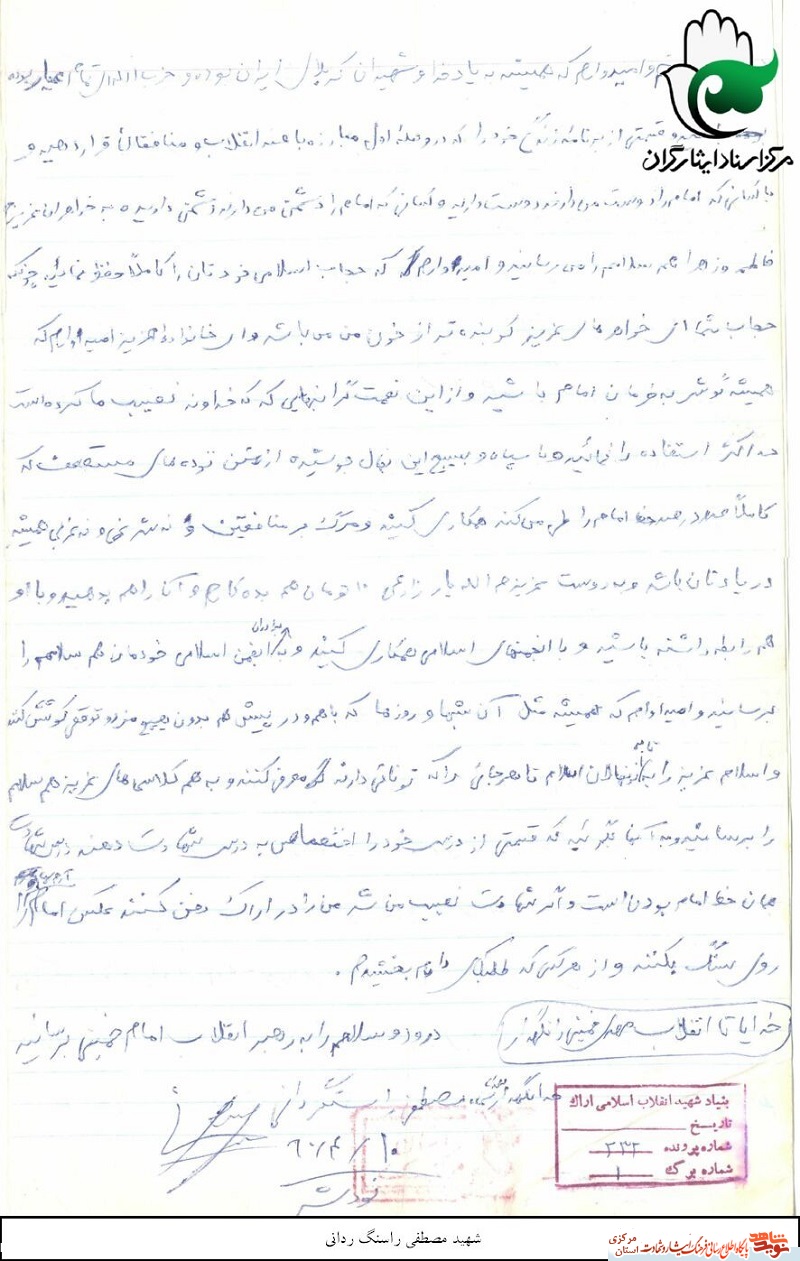 مرکز اسناد ایثارگران
و امیدوارم که همیشه به یاد خدا و شهیدان کربلای ایران بوده و حزب اللهی تمام عیار بوده
و قسمتی از برنامه زندگی خود را که در وهله اول مبارزه با ضد انقلاب و منافقان قرار دهید و
با کسانی که امام را دوست می دارند دوست دارید و کسانی که امام را دشمن می دارند دشمن دارید و به خواهران عزیزم
فاطمه و زهرا هم سلامم را می رسانید و امیدوارم که حجاب اسلامی خودتان را کاملاً حفظ نمائید چونکه
حجاب شما ای خواهرهای عزیز کوبنده تر از خون من می باشد و ای خانواده عزیز امیدوارم که
همیشه گوش به فرمان امام باشید و از این نعمت گرانبهایی که که خداوند نصیب ما کرده است
حداکثر استفاده را نمائید و با سپاه و بسیج این نهال جوشیده از متن توده های مستضعف که
کاملاً صد در صد خط امام را طی می کند همکاری کنید و مرگ بر منافقین و نه شرقی و نه غربی همیشه
در یادتان باشد و به دوست عزیزم الله یار زارعی ۱۰ تومان هم بدهکارم و آن را هم بدهید و با او
هم رابطه داشته باشید و با انجمنهای اسلامی همکاری کنید و به برادران انجمن اسلامی خودمان هم سلامم را
برسانید و امیدوارم که همیشه مثل آن شبها و روزها که با هم و در پیش هم بدون هیچ مزد و توقع کوشش کنند
و اسلام عزیز را به تا هرجائی را که توانائی دارند معرفی کنند و به هم کلاسی های عزیز هم سلام
را برسانید و به آنها بگوئید که قسمتی از درس خود را اختصاص به درس شهادت دهند درس شهادت
همان خط امام بودن است و اگر شهادت نصیب من شد من را در اراک دفن کنند عکس امام را
روی سنگ بکنند و از هر کس که طلبکاری دارم بخشیدم .
خدایا تا انقلاب مهدی خمینی را نگهدار
درود و سلامم را به رهبر انقلاب امام خمینی برسانید
خدانگهدار مصطفی راستگردانی
۶۰/۴/۱۰
نودشه
بنیاد شهید انقلاب اسلامی اراک
تاریخ
شماره پرونده ۲۳۲
شماره برگ ۱
شهید مصطفی راسنگ ردانی
نوید شاهد
پایگاه اطلاع رسانی فرهنگ ایثار و شهادت استان مرکزی